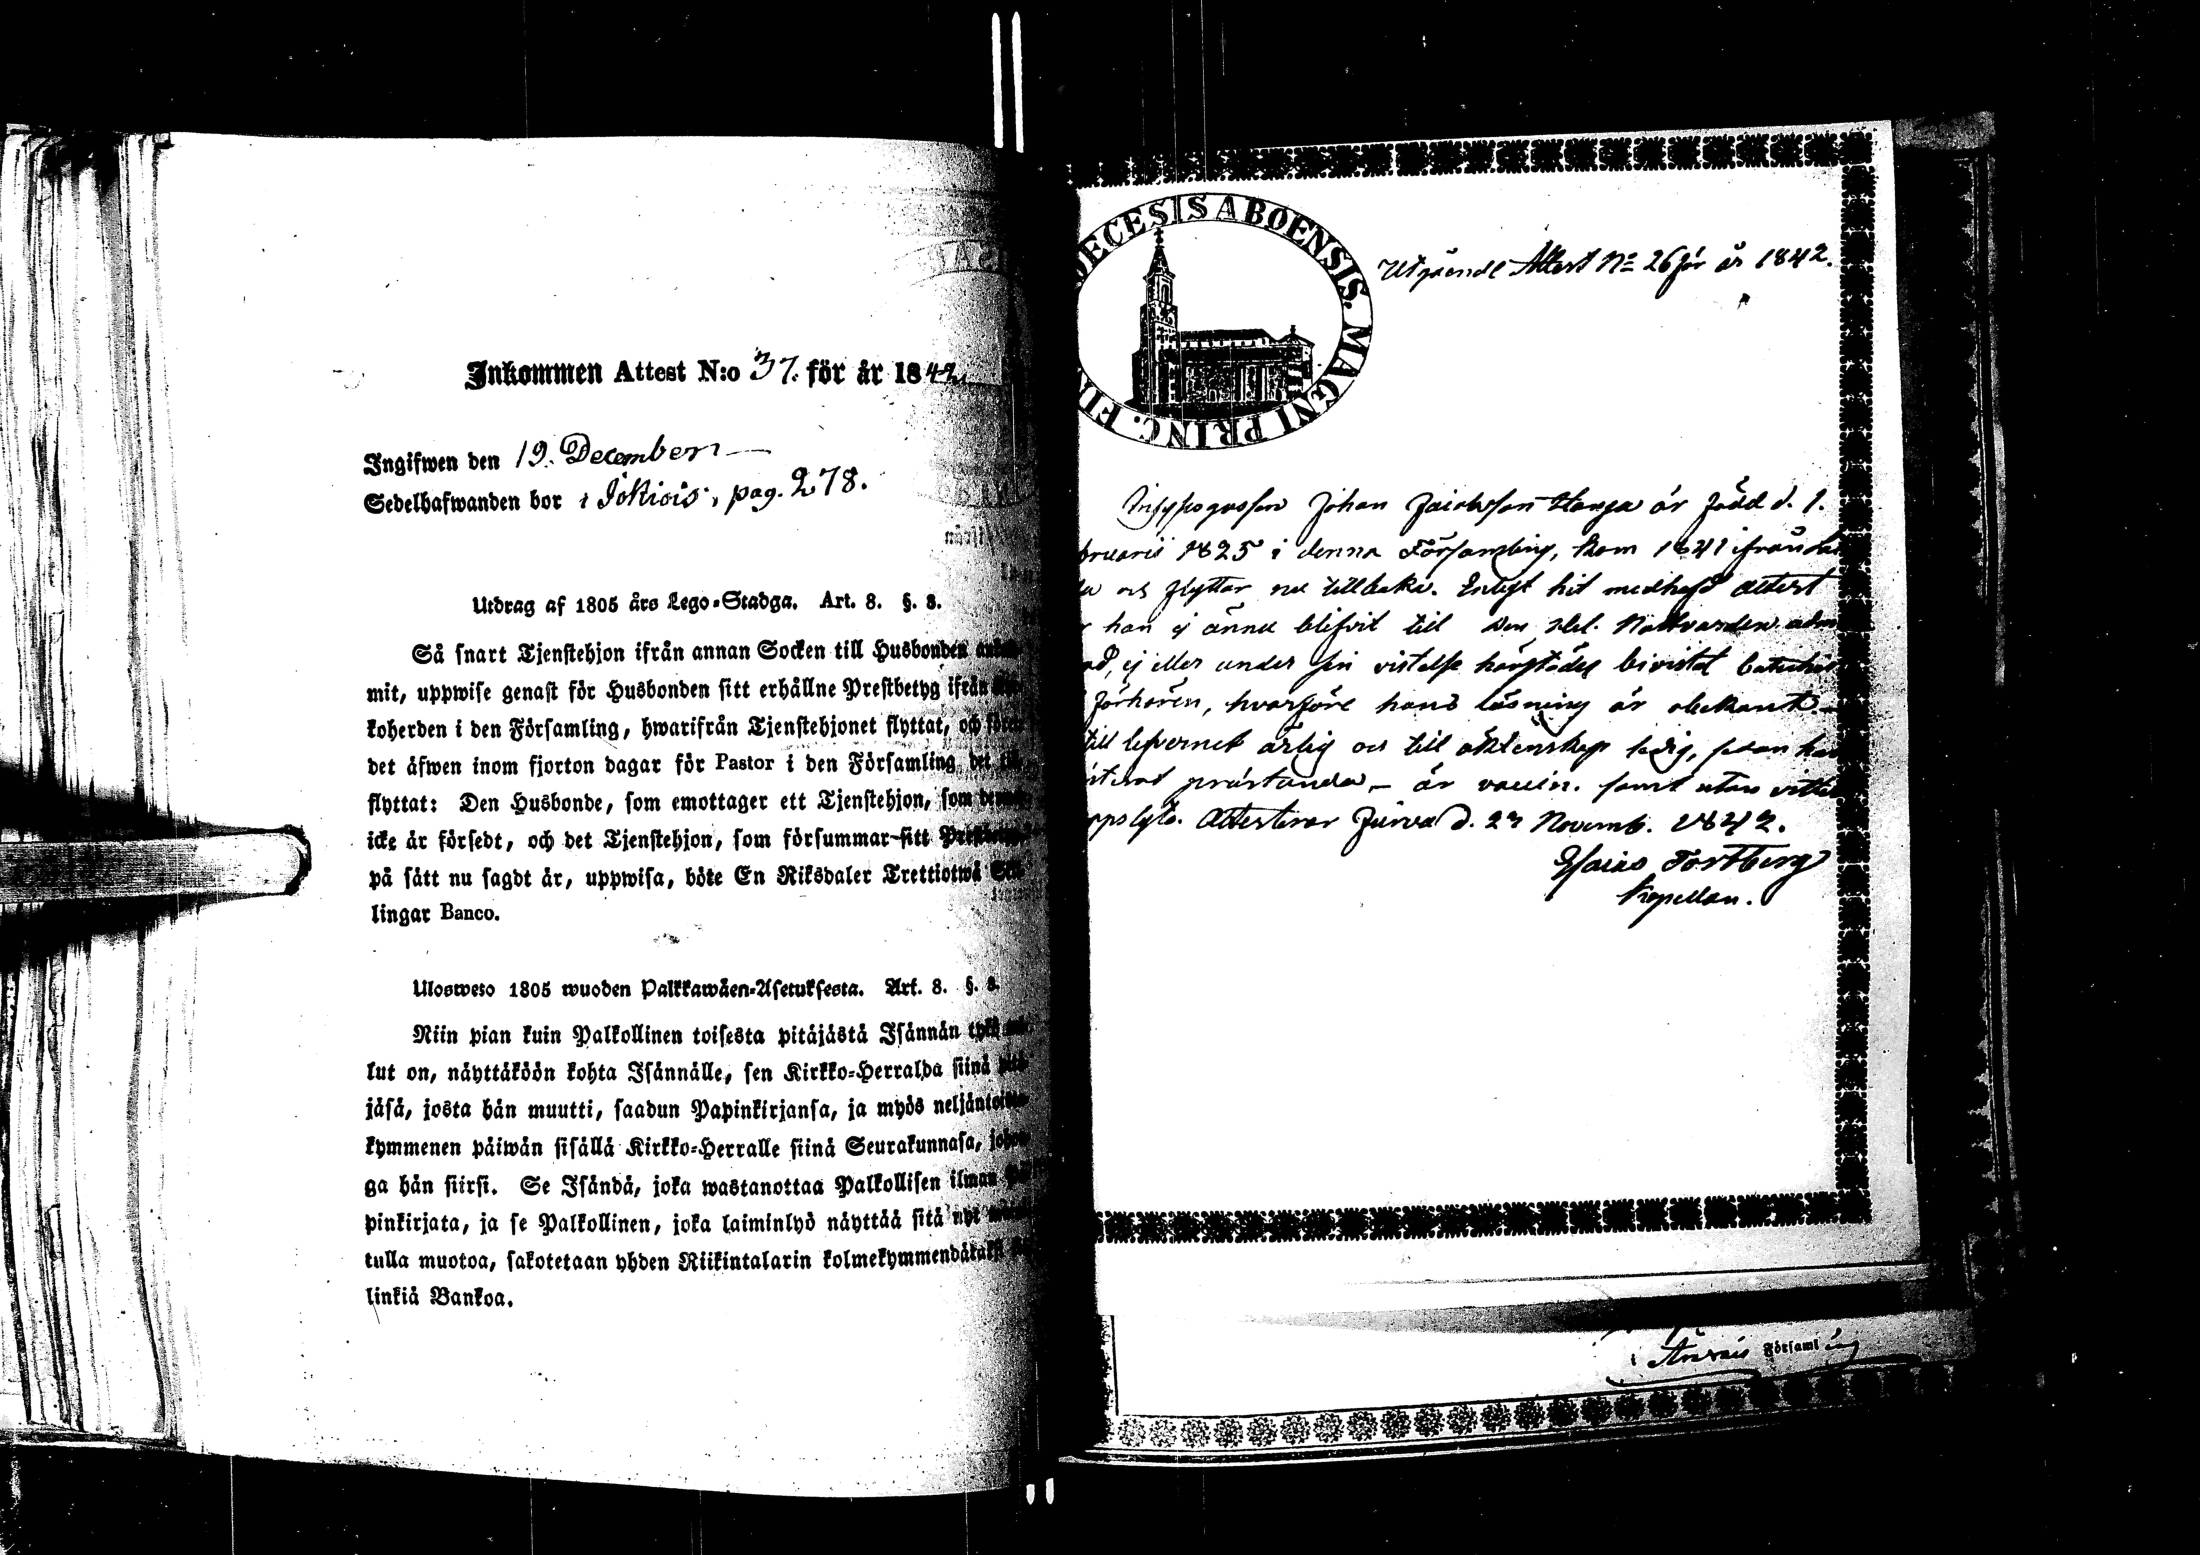 Inkommen Attest N:o 37. för år 1842
Ingifwen den 19. December
Sedelhafwanden bor i Jokiois, pag. 278.
Utdrag af 1805 års Lego-Stadga. Art. 8. §. 8.
Så snart Tjenstehjon ifrån annan Socken till Husbonden
mit, uppwise genast för Husbonden sitt erhållne Prestbetyg ifrån
koherden i den Församling, hwarifrån Tjenstehjonet flyttat, och
det äfwen inom fjorton dagar för Pastor i den Församling, det
flyttat: Den Husbonde, som emottager ett Tjenstehjon, som
icke är försedt, och det Tjenstehjon, som försummar sitt
på sätt nu sagdt är, uppwisa, böte En Riksdaler Trettiotwå
lingar Banco.
Ulosweso 1805 wuoden Palkkawäen-Asetuksesta. Art. 8. §. 8.
Niin pian kuin Palkollinen toisesta pitäjästä Isännän tykö
lut on, näyttäköön kohta Isännälle, sen Kirkko-Herralda siinä
jäsä, josta hän muutti, saadun Papinkirjansa, ja myös neljäntoista
kymmenen päiwän sisällä Kirkko-Herralle siinä Seurakunnasa,
ga hän siirsi. Se Isändä, joka wastanottaa Palkollisen ilman
pinkirjata, ja se Palkollinen, joka laiminlyö näyttää sitä nyt
tulla muotoa, sakotetaan yhden Riikintalarin kolmekymmendäkaksi
linkiä Bankoa.
DECESIS ABOENSIS. MAGNI PRINC. FIN
Utgående Attest No 26 för år 1842.
Johan Jacobsson är född d. 1.
bruarii 1825 i denna Församling, kom 1841 ifrån
och flyttar nu tillbaka. Enligt hit medhafd attest
han ej ännu blifvit till Nattvarden
ej eller under sin vistelse härstädes bivistat
förhören, hvarföre hans läsning är obekant.
till lefvernet ärlig och till äktenskap ledig,
prästanda, - är vaccin. samt utan
Attesterar d. 27 Novemb. 1842.
Esaias Fortberg
Kapellan.
i Församling